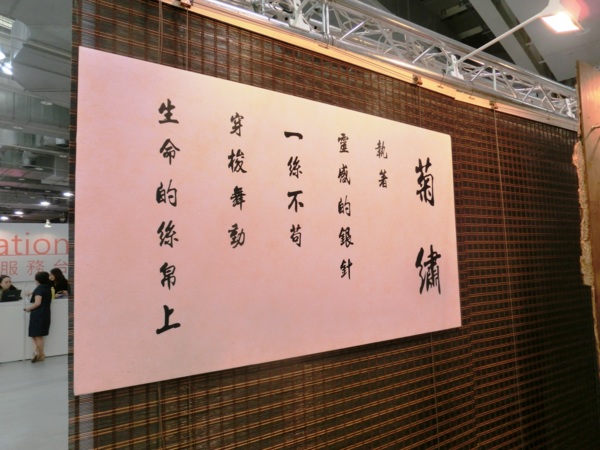 菊繡
執著
靈感的銀針
一絲不苟
穿梭舞動
生命的絲帛上
ation
服務台